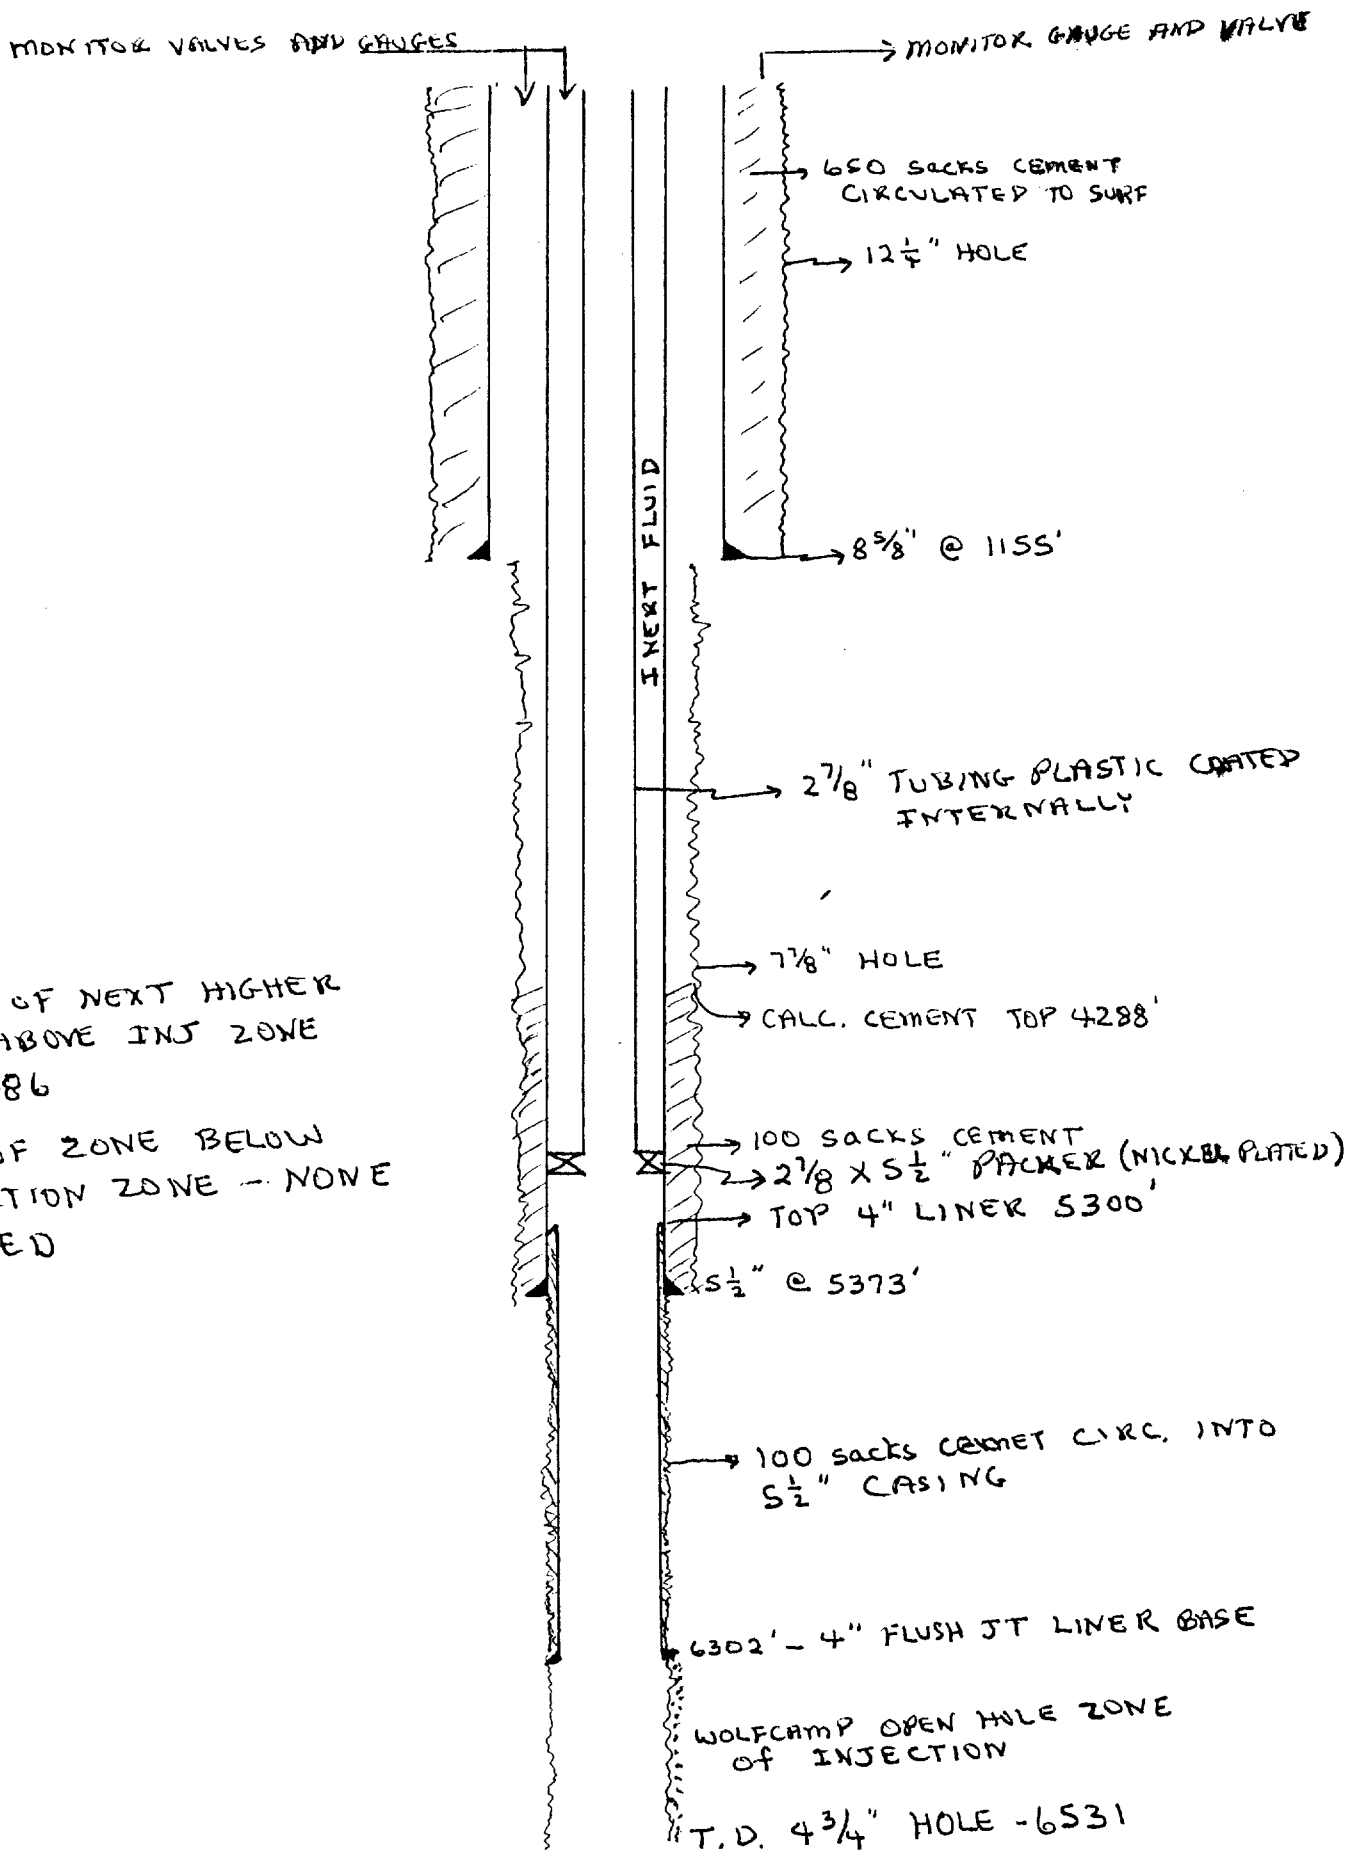 MONITOR VALVES AND GAUGES
MONITOR GAUGE AND VALVE
650 SACKS CEMENT
CIRCULATED TO SURF
12 1/4" HOLE
INERT FLUID
8 5/8" @ 1155'
2 7/8" TUBING PLASTIC COATED
INTERNALLY
7 7/8" HOLE
CALC. CEMENT TOP 4288'
OF NEXT HIGHER
ABOVE INJ ZONE
86
OF ZONE BELOW
TION ZONE - NONE
ED
100 SACKS CEMENT
2 7/8 X 5 1/2" PACKER (NICKEL PLATED)
TOP 4" LINER 5300'
5 1/2" @ 5373'
100 SACKS CEMET CIRC. INTO
5 1/2" CASING
6302' - 4" FLUSH JT LINER BASE
WOLFCAMP OPEN HOLE ZONE
OF INJECTION
T.D. 4 3/4" HOLE - 6531